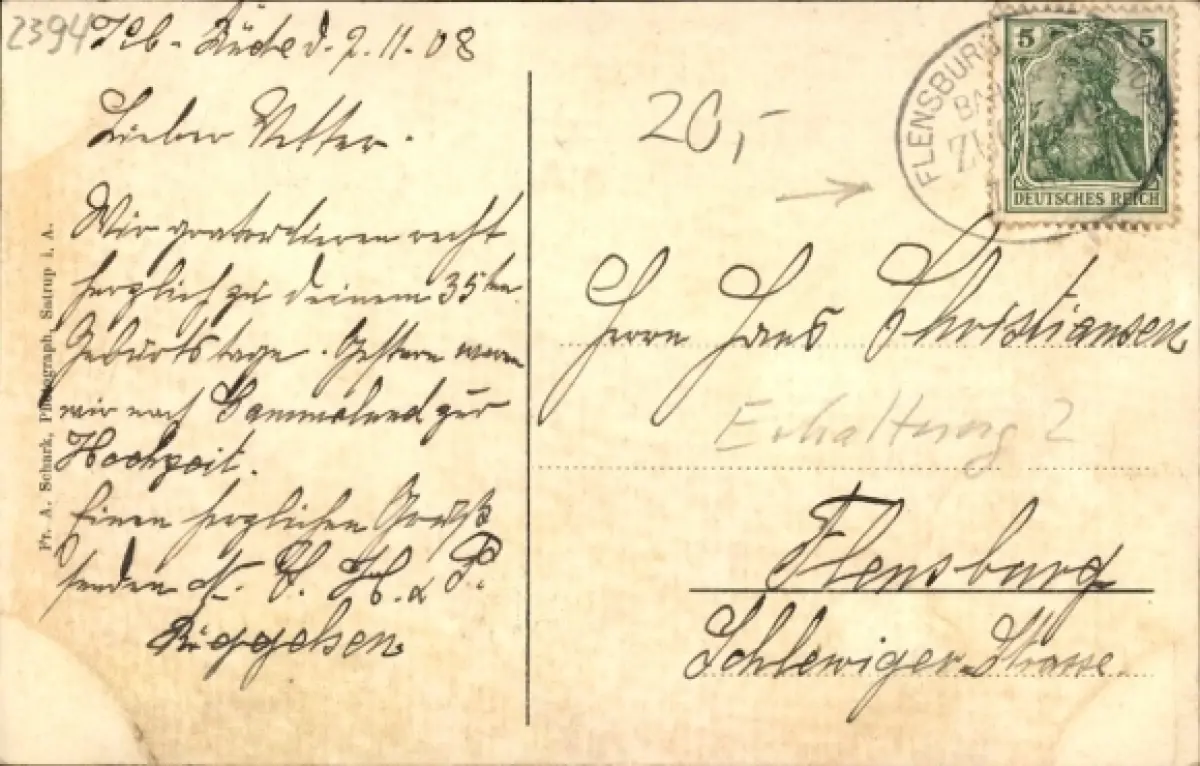 2394
Rüde d. 9.11.08
Lieber Vetter.
Wir gratulieren recht
herzlich zu deinem 35ten
Geburtstage. Gestern waren
wir nach zur
Hochzeit.
Einen herzlichen Gruß
senden N. C. H. & P.
Rüggelsen
Pr. A. Schurk, Photograph, Satrup i. A.
20,-
FLENSBURG
BA
ZU
5 5
DEUTSCHES REICH
Herrn Hans Christiansen
Erhaltung 2
Flensburg
Schlewiger-Strasse.